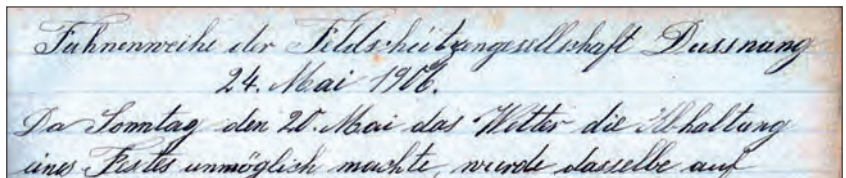 Fahnenweihe der Feldschützengesellschaft Dussnang
24. Mai 1906.
Da Sonntag den 20. Mai das Wetter die Abhaltung
eines Festes unmöglich machte, wurde dasselbe auf